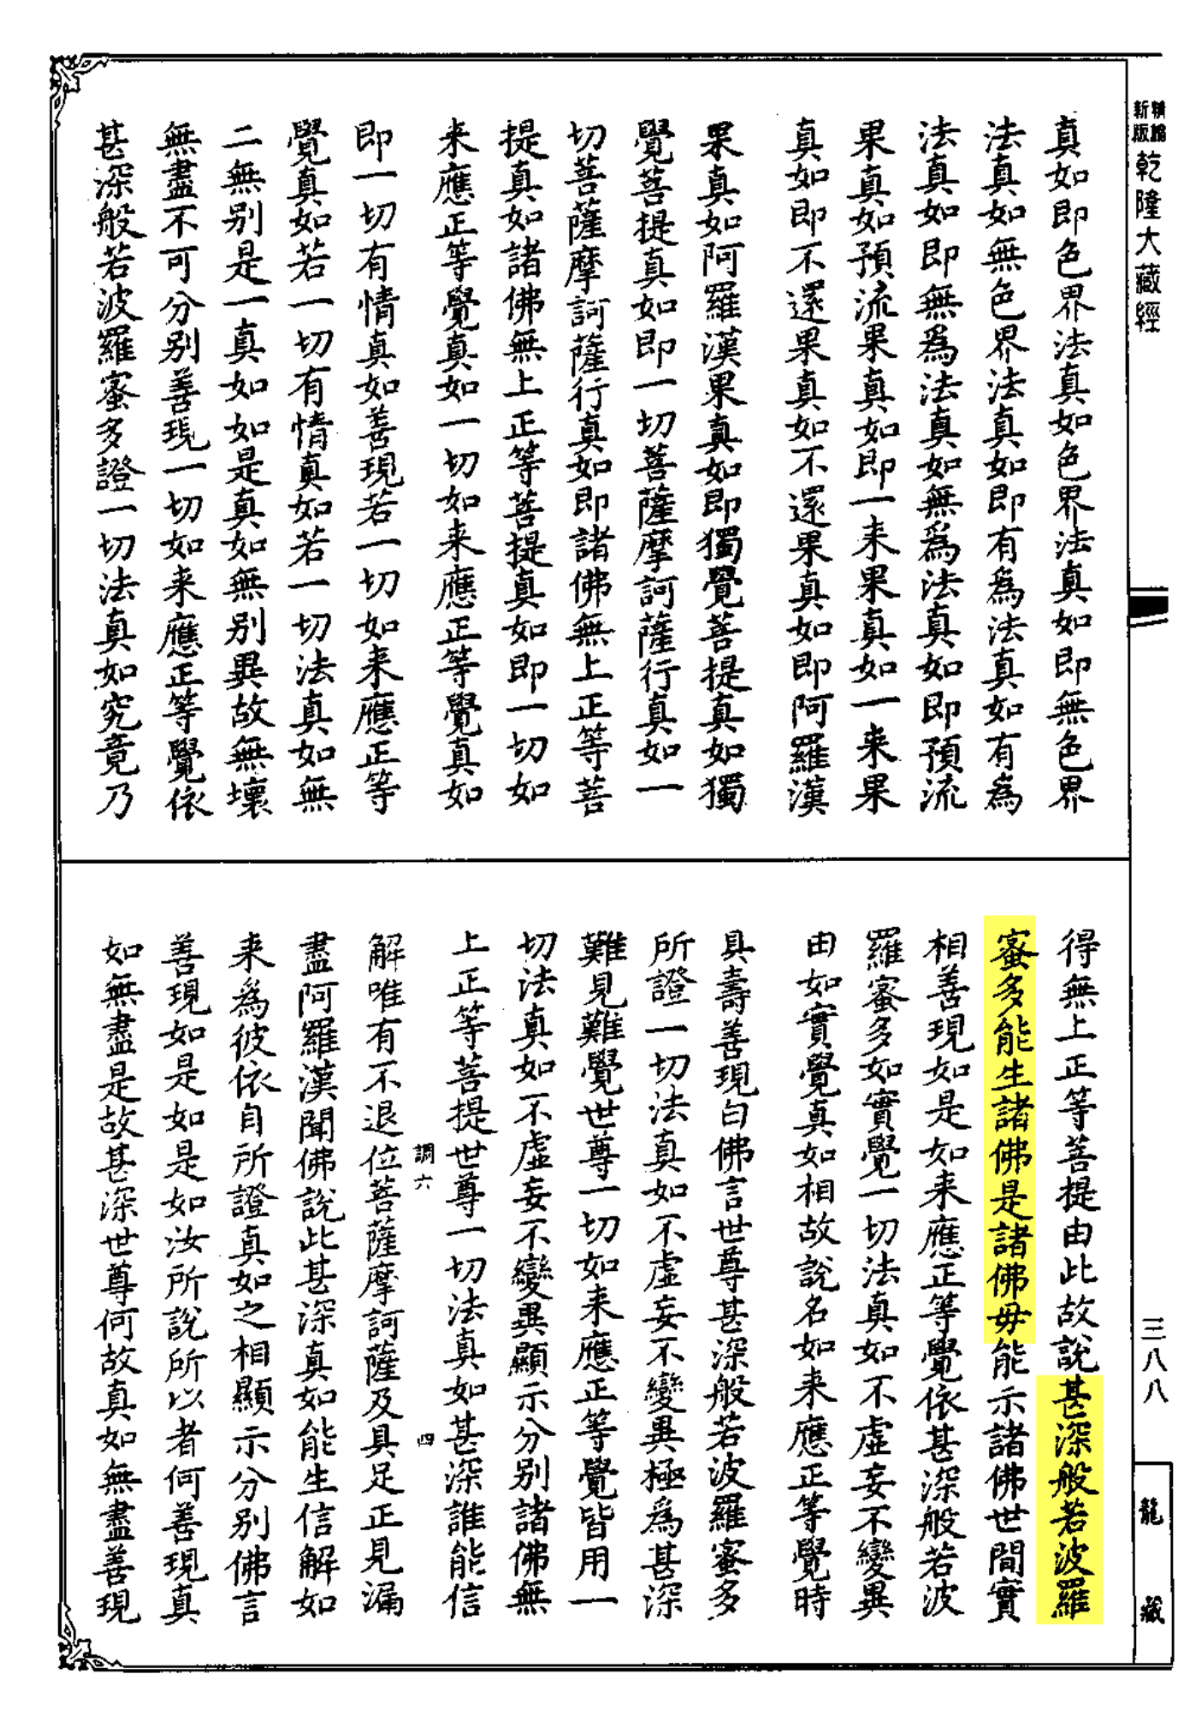 精縮
新版
乾隆大藏經
真如即色界法真如色界法真如即無色界
法真如無色界法真如即有為法真如有為
法真如即無為法真如無為法真如即預流
果真如預流果真如即一来果真如一来果
真如即不還果真如不還果真如即阿羅漢
果真如阿羅漢果真如即獨覺菩提真如獨
覺菩提真如即一切菩薩摩訶薩行真如一
切菩薩摩訶薩行真如即諸佛無上正等菩
提真如諸佛無上正等菩提真如即一切如
来應正等覺真如一切如来應正等覺真如
即一切有情真如善現若一切如来應正等
覺真如若一切有情真如若一切法真如無
二無别是一真如如是真如無别異故無壞
無盡不可分别善現一切如来應正等覺依
甚深般若波羅蜜多證一切法真如究竟乃
得無上正等菩提由此故說甚深般若波羅
蜜多能生諸佛是諸佛毋能示諸佛世間實
相善現如是如来應正等覺依甚深般若波
羅蜜多如實覺一切法真如不虛妄不變異
由如實覺真如相故說名如来應正等覺時
具壽善現白佛言世尊甚深般若波羅蜜多
所證一切法真如不虛妄不變異極為甚深
難見難覺世尊一切如来應正等覺皆用一
切法真如不虛妄不變異顯示分别諸佛無
上正等菩提世尊一切法真如甚深誰能信
調六
四
解唯有不退位菩薩摩訶薩及具足正見漏
盡阿羅漢聞佛說此甚深真如能生信解如
来為彼依自所證真如之相顯示分别佛言
善現如是如是如汝所說所以者何善現真
如無盡是故甚深世尊何故真如無盡善現
三八八
龍藏